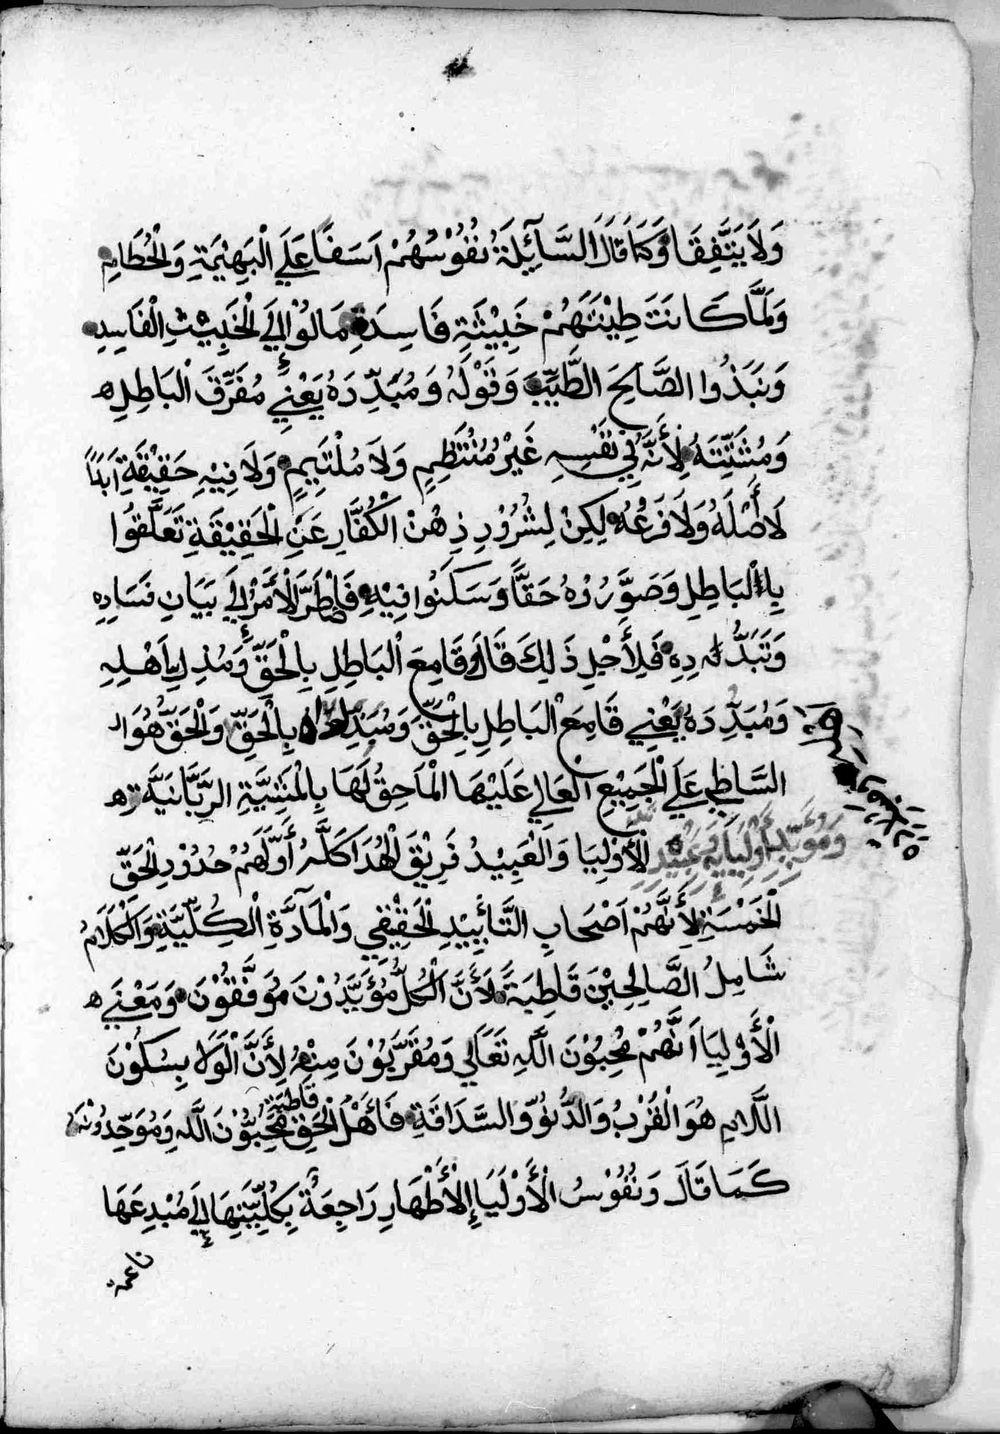 وَلَا يَتَّفِقَا وَكَمَا قَالَ السَّآئِلَةَ نُفُوْسُهُمْ اَسَفًا عَلَي الْبَهِيْمَةِ وَالْحُطَامِ
وَلَمَّا كَانَتَ طِيْنَتَهُمْ خَبِيْثَةِ فَاسِدَةِ مَالُوْا اِلَي الْخَبِيْثِ الْفَاسِدِ
وَنَبَذُوا الصَّالِحَ الطَّيِّبَ وَقَوْلَهُ وَمُبَدِّدَهُ يَعْنِي مُفَرِّقَ الْبَاطِلِ ه
وَمُشَتِّتَهُ لِأَنَّهُ فِي نَفْسِهِ غَيْرُ مُنْتَظِمٍ وَلَا مُلْتَئِمٍ وَلَا فِيْهِ حَقِيْقَةِ اَبَدًا
لَا أَصْلَهُ وَلَا فَرْعُهُ لٰكِنْ لِشُرُوْدِ ذِهْنِ الْكُفَّارِ عَنِ الْحَقِيْقَةِ تَعَلَّقُوا
بِالْبَاطِلِ وَصَوَّرُوْهُ حَقًّا وَسَكَنُوا فِيْهِ فَاضْطَرَّ الْأَمْرُ اِلَي بَيَانِ فَسَادِهِ
وَتَبَدُّدِهِ فَلِأَجْلِ ذَلِكَ قَالَ وَقَامِعَ الْبَاطِلِ بِالْحَقِّ وَمُذِلَّ اَهْلِهِ
وَمُبَدِّدَهُ يَعْنِي قَامِعَ الْبَاطِلِ بِالْحَقِّ وَمُبَدِّدَهُ بِالْحَقِّ وَالْحَقُّ هُوَ الـ
السَّاطِي عَلَي الْجَمِيْعِ الْعَالِي عَلَيْهَا الْمَاحِقُ لَهَا بِالْمَشِيَّةِ الرَّبَّانِيَّةِ ه
وَمُؤَيِّدِ أَوْلِيَايِهِ عَبِيْدِهِ الْأَوْلِيَا وَالْعَبِيْدُ فَرِيْقَ الْهُدَا كَلَّهُ أَوَّلَهُمْ حُدُوْدِ الْحَقِّ
الْخَمْسَةِ لِأَنَّهُمْ اَصْحَابِ التَّأْيِيْدِ الْحَقِيْقِي وَالْمَآدَّةِ الْكِلِّيَّةِ وَالْكَلَامُ
شَامِلُ الصَّالِحِيْنَ قَاطِبَةً لَأَنَّ الْكُلَّ مُؤَيَّدُوْنَ مُوَفَّقُوْنَ وَمَعْنَي ه
الْأَوْلِيَا اَنَّهُمْ مُحِبُوْنَ اللَّهِ تَعَالَي وَمُقَرَّبُوْنَ مِنْهُ لِأَنَّ الْوَلَا بِسُكُوْنَ
اللَّامِ هُوَ الْقُرْبُ وَالدُّنُوِّ وَالسَّدَاقَةِ فَأَهْلُ الْحَقِّ قَاطِبَةً مُحِبُّوْنَ اللَّهِ وَمُوَحِّدُوْنَهُ
كَمَا قَالَ وَنُفُوْسُ الْأَوْلِيَا الْأَطْهَارِ رَاجِعَةٌ بِكُلِّيَّتِهَا اِلَي مُبْدِعَهَا
ناعمة